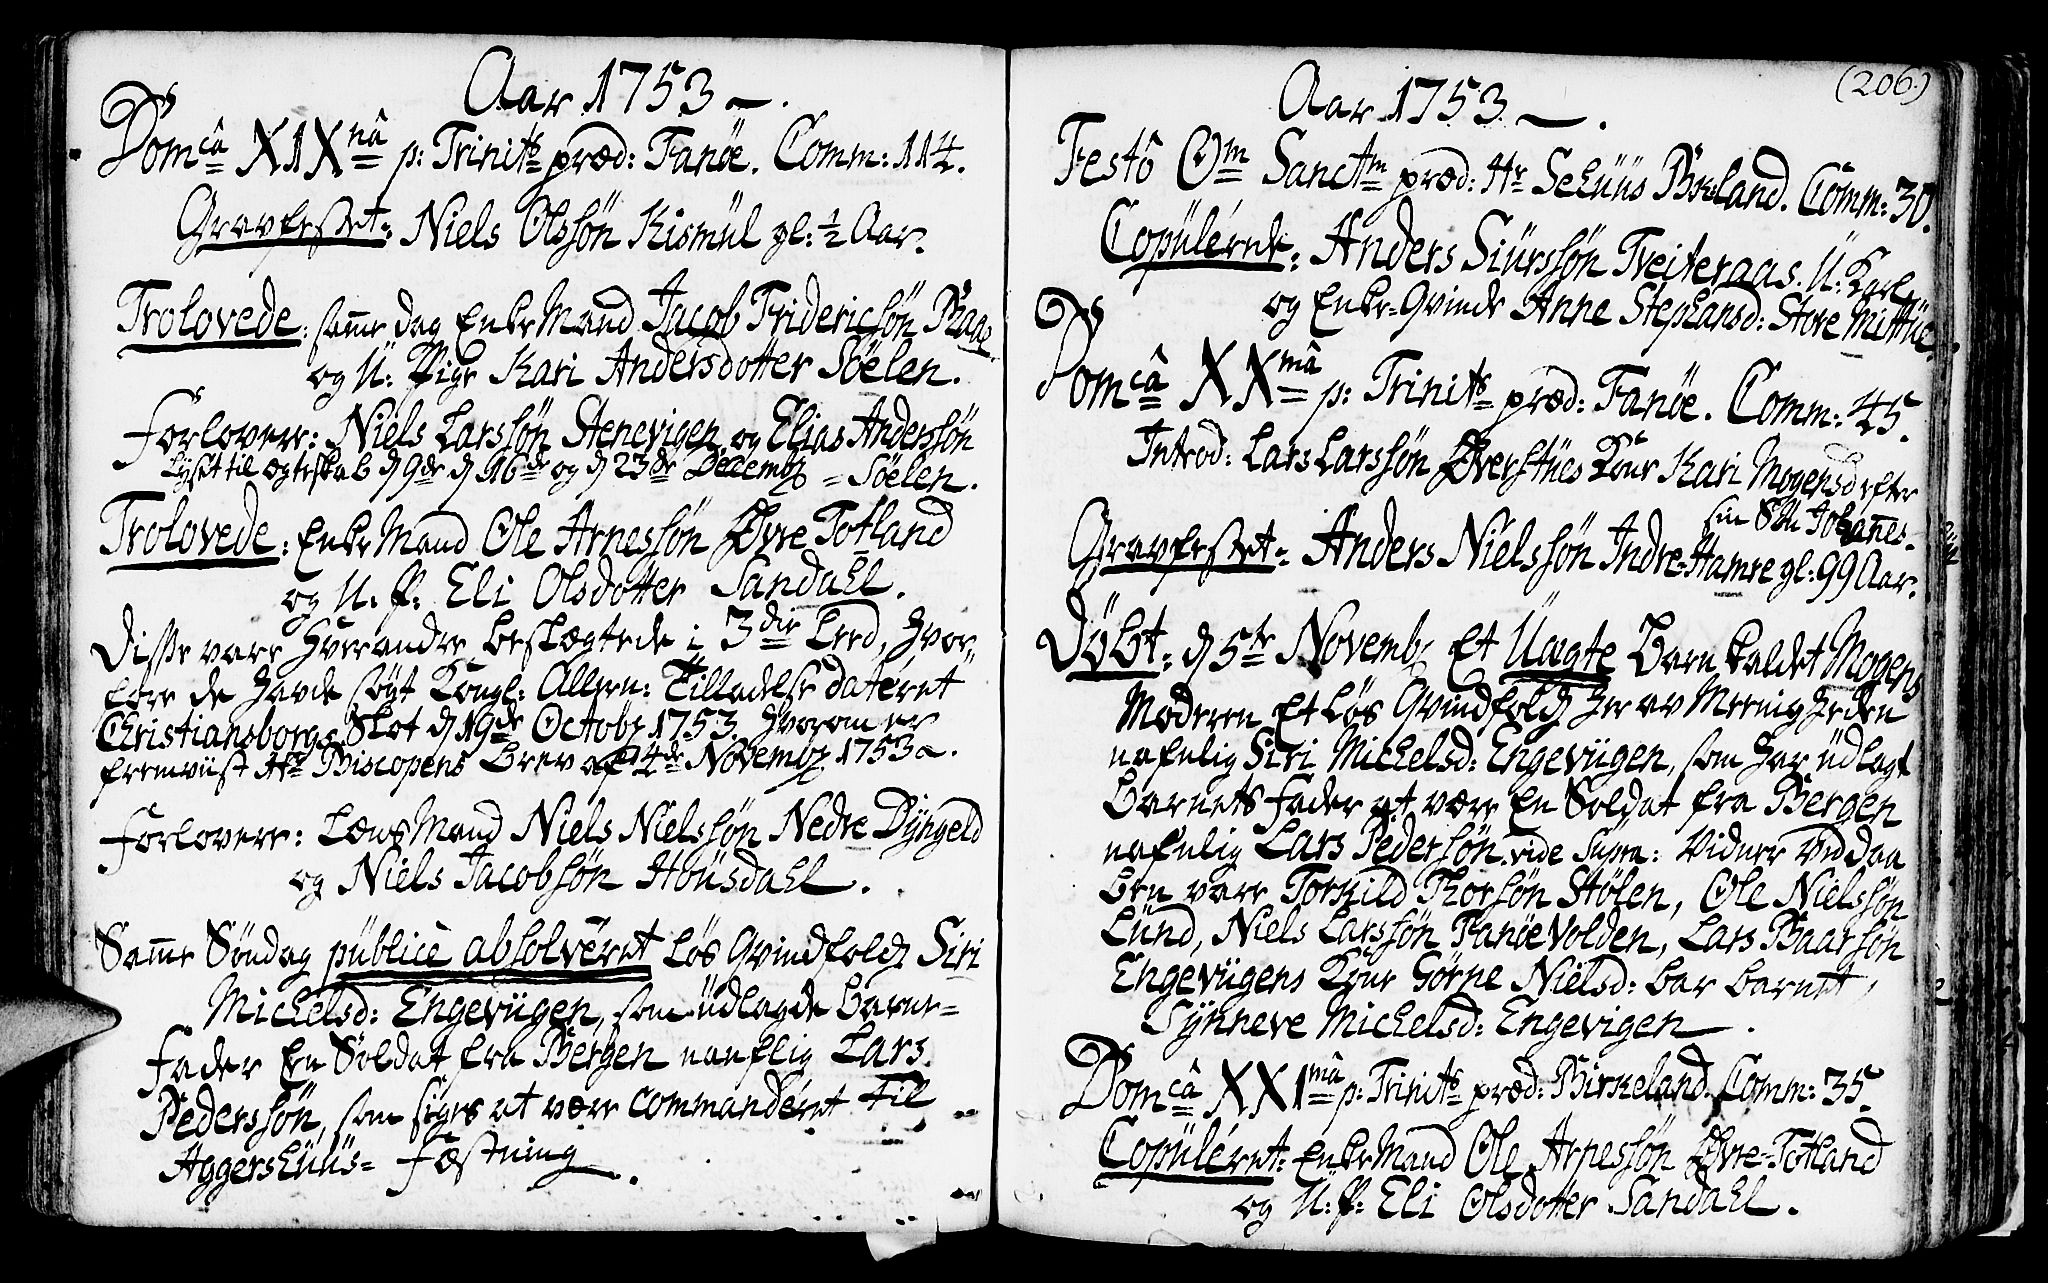 Aar 1753 —.
Dom:câ XIX:nâ p: Trinit:s præd: Fanöe. Comm: 114.
Gravfestet: Niels Olssøn Kismül gl: ½ Aar.
Trolovede: samme dag EnkeMand Jacob Fridericsøn Raae
og U: Pige Kari Andersdotter Söelen.
Forlovere: Niels Larssøn Stenevigen og Elias Anderssøn
Lyset til ægteskab d 9de d 16de og d 23de Decembr = Söelen.
Trolovede: EnkeMand Ole Arnessøn Øvre Totland
og U. P: Eli Olsdotter Sandahl.
Disse vare hverandre beslægtede i 3die Leed, hvor-
fore de havde søgt Kongl: Allern: Tilladelse datéret
Christiansborgs Slot d 19de Octobr 1753. hvorom er
fremviist Hr Biscopens Brev af 4de Novembr 1753.
Forlovere: LænsMand Niels Nielssøn Nedre Dÿngeld
og Niels Jacobsøn Höusdahl.
Samme Søndag püblicè absolvéret Løs Qvindfolch Siri
Michelsd: Engevügen, som üdlagde Barne=
Fader En Soldat fra Bergen nauflig Lars
Pederssøn, som siges at være commandéret till
Aggershüüs= Fæstning.
(206.)
Aar 1753 —.
Festô Om Sanctm præd: Hr Sehüüs Birkeland. Comm: 30.
Copülérede: Anders Siürssøn Tveiteraas. U: Karl
og Enke-Qvinde Anne Stephansd: Store Mittüe.
Dom:câ XX:mâ p: Trinit:s præd: Fanöe. Comm: 45.
Introd: Lars Larssøn Øverstües Kone Kari Mogensd efter
sin S: Johanes.
Gravfestet: Anders Nielssøn Indre-Hamre gl: 99 Aar.
Döbt: d 5te Novembr Et Uægte Barn kaldet Mogens
Moderen Et Løs Qvindfolch her av Meenigheden
nafnlig Siri Michelsd: Engevügen, som har üdlagt
Barnets Fader at være En Soldat fra Bergen
nafnlig Lars Pederssøn. vide Supra: Vidner ved Daa
ben vare Torkild Thorsøn Stölen, Ole Nielssøn
Lünd, Niels Larssøn Fanöe Volden, Lars Baarsøn
Engevügens Kone Görne Nielsd: bar barnet,
Sÿnneve Michelsd: Engevigen.
Dom:câ XXI:mâ p: Trinit:s præd: Birkeland. Comm: 35.
Copüléret: EnkeMand Ole Arnessøn Øvre-Totland
og U: P: Eli Olsdotter Sandahl.